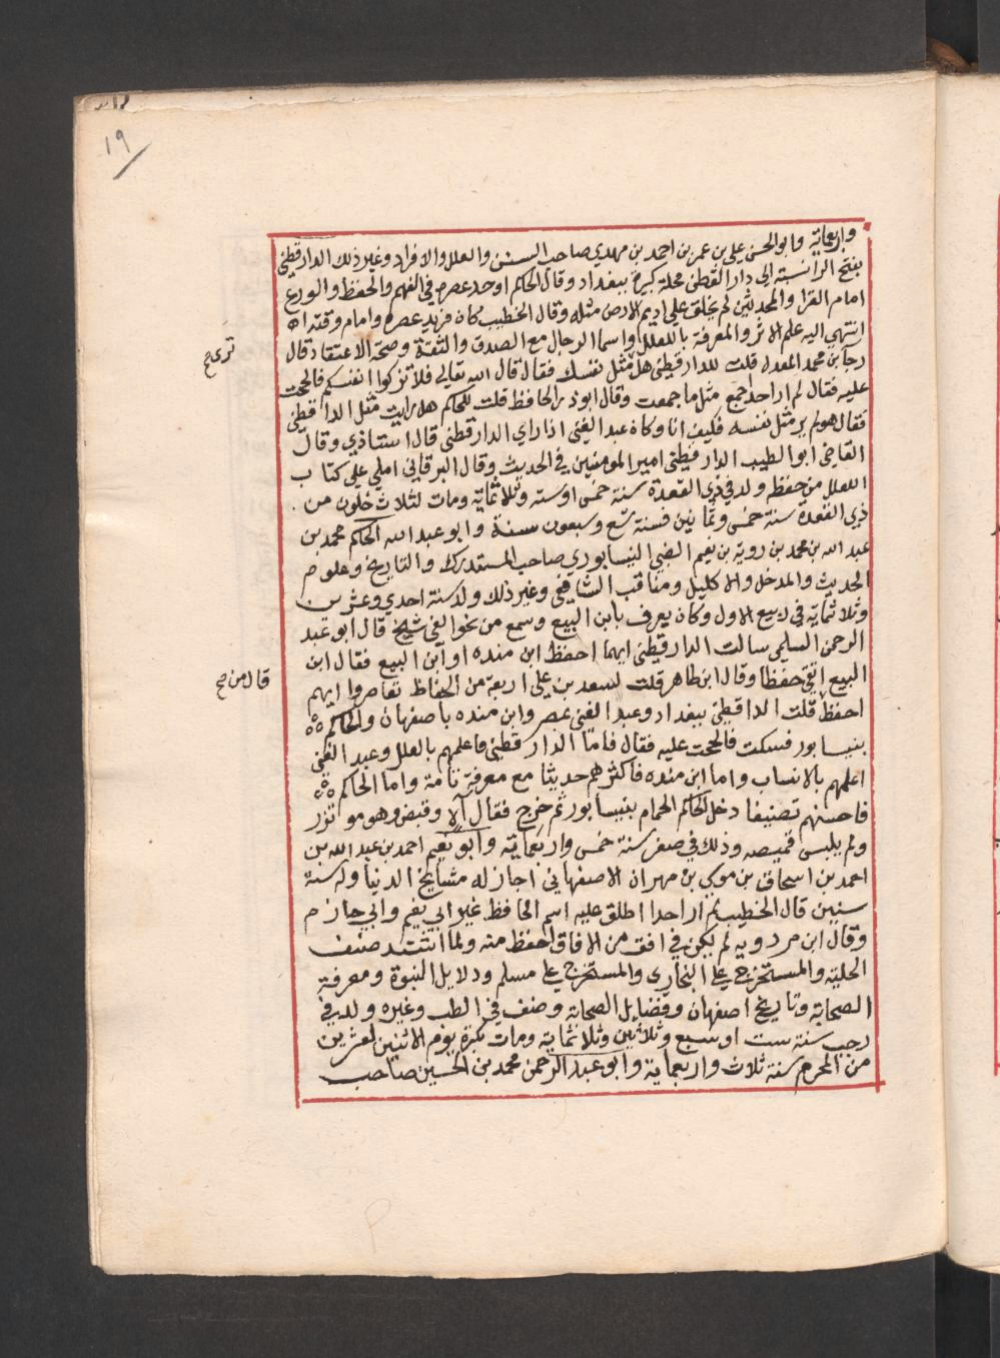 ١٩
واربعماية وابو الحسن علي بن عمر بن احمد بن مهدي صاحب السنن والعلل والافراد وغير ذلك الدارقطني
بفتح الرا نسبة الي دار القطن محلة كبيرة ببغداد وقال الحاكم اوحد عصره في الفهم والحفظ والورع
امام القرا والمحدثين لم يخلق علي اديم الارض مثله وقال الخطيب كان فريد عصره وامام وقته
انتهي اليه علم الاثر والمعرفة بالعلل واسما الرجال مع الصدق والثقة وصحة الاعتقاد قال
رجآ بن محمد المعدل قلت للدارقطني هل مثل نفسك فقال قال الله تعالي فلا تزكوا انفسكم فالححت
عليه فقال لم ار احدا جمع مثل ما جمعت وقال ابو ذر الحافظ قلت للحاكم هل رايت مثل الداقطني
فقال هو لم ير مثل نفسه فكيف انا وكان عبد الغني اذا راي الدارقطني قال استاذي وقال
القاضي ابو الطيب الدارقيطني امير المومنين في الحديث وقال البرقاني املي علي كتاب
العلل من حفظه ولد في ذي القعدة سنة خمس او سته وثلاثماية ومات لثلاث خلون من
ذي القعدة سنة خمس وثمانين فسنة تسع وسبعون سنة وابو عبد الله الحاكم محمد بن
عبد الله بن محمد بن رويه بن نعيم الضبي النيسابوري صاحب المستدرك والتاريخ وعلوم
الحديث والمدخل والاكليل ومناقب الشافعي وغير ذلك ولد سنة احدي وعشرين
وثلاثماية في ربيع الاول وكان يعرف بابن البيع وسمع من نحو الفي شيخ قال ابو عبد
الرحمن السلمي سالت الدارقيطني ايهما احفظ ابن منده او ابن البيع فقال ابن
البيع اتقي حفظا وقال ابن طاهر قلت لسعد بن علي اربعة من الحفاظ تعاصروا ايهم
احفظ قلت الداقطني ببغداد وعبد الغني بمصر وابن منده باصفهان والحاكم
بنيسابور فسكت فالححت عليه فقال فاما الدارقطني فاعلمهم بالعلل وعبد الغني
اعلمهم بالانساب واما ابن منده فاكثرهم حديثا مع معرفة تامة واما الحاكم
فاحسنهم تصنيفا دخل الحاكم الحمام بنيسابور ثم خرج فقال آه وقبض وهو موتزر
ولم يلبس قميصه وذلك في صفر سنة خمس واربعماية وابو نعيم احمد بن عبد الله بن
احمد بن اسحاق بن موسي بن مهران الاصفهاني اجاز له مشايخ الدنيا وله ستة
سنين قال الخطيب لم ار احدا اطلق عليه اسم الحافظ غير ابي نعيم وابي حازم
وقال ابن مردويه لم يكن في افق من الافاق احفظ منه ولما صنف
الحلية والمستخرج علي البخاري والمستخرج علي مسلم ودلايل النبوة ومعرفة
الصحابة وتاريخ اصفهان وفضايل الصحابة وصنف في الطب وغيره ولد في
رجب سنة ست او سبع وثلاثين وثلاثماية ومات بكرة يوم الاثنين لعشرين
من المحرم سنة ثلاث واربعماية وابو عبد الرحمن محمد بن الحسين صاحب
قال من صح